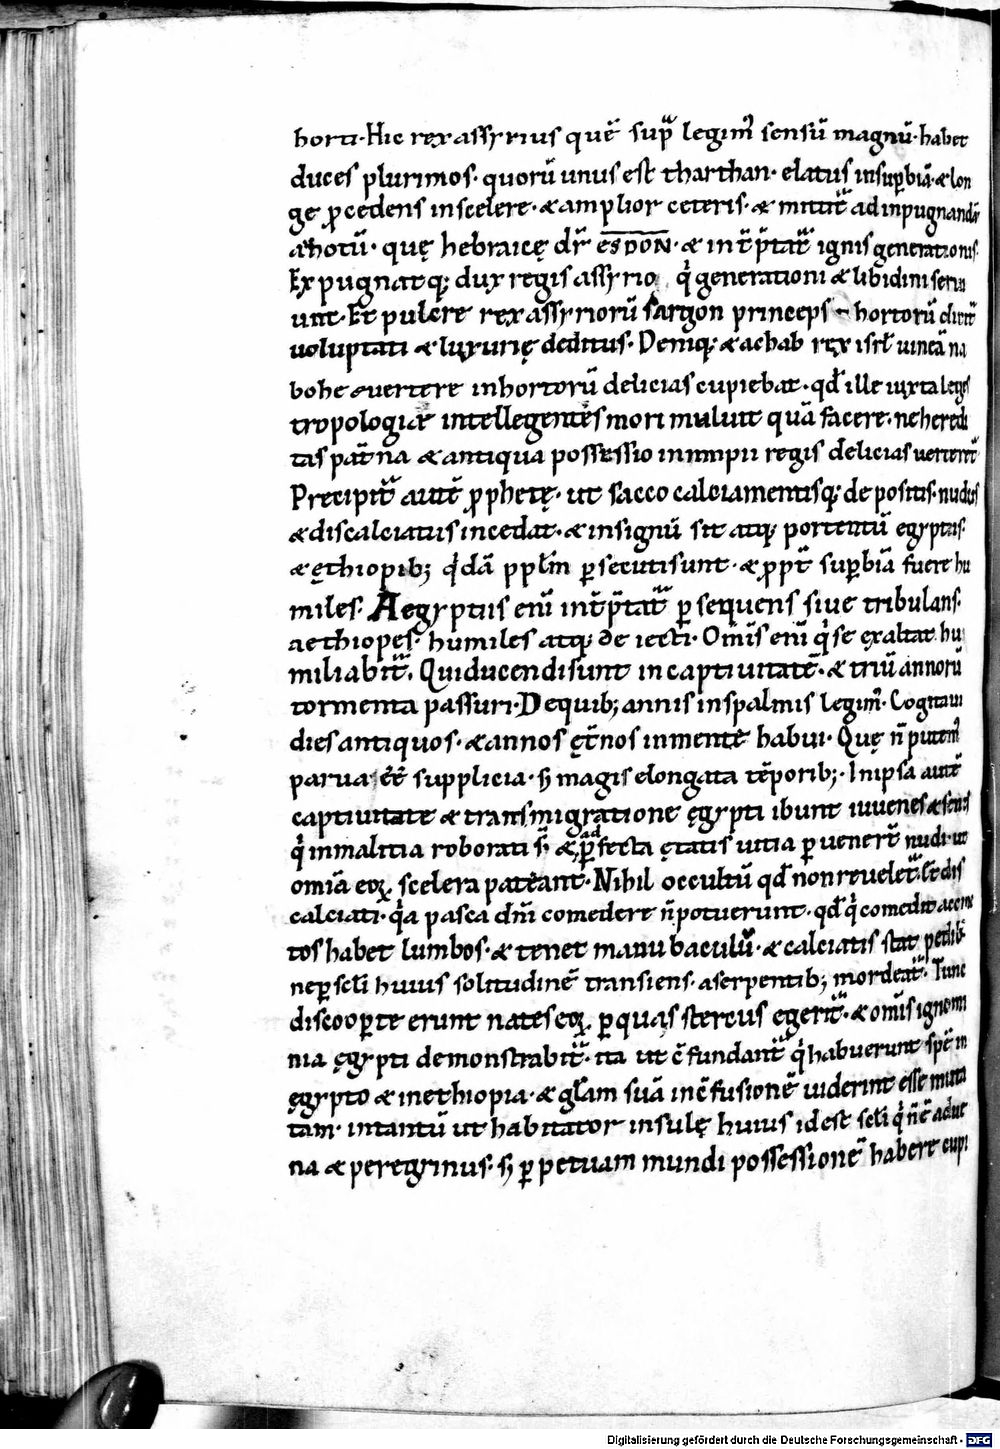 horti· Hic rex assyrius quē sup̄ legim᷒ sensū magnū· habet
duces plurimos· quorū unus est tharthan· elatus insup̱biā· & lon
ge p̱cedens inscelere· & amplior ceteris· & mittit᷑ adinpugnandā
ahotū· quę hebraicę dr̄ esdon· & int̄p̄tat᷑ ignis generationis·
Expugnatq; dux regis assyrio q̇ generationi & libidini serui
unt· Et pulcre rex assyriorū sargon princeps hortorū dicit᷑
uoluptati & luxurię deditus· Deniq; & achab rex isrł uineā na
bohe euertere inhortorū delicias cupiebat· qđ ille iuxta leges
tropologiae intellegentes mori maluit quā facere· ne heredi
tas pat̄na & antiqua possessio inimpii regis delicias uerteret᷑
Precipit᷑ autē p̱phetę· ut sacco calciamentisq; depositis· nudus
& discalciatus incedat· & insignū sit atq; portentū egyptus·
& ęthiopib; q̇dā pp̄łm p̱secuti sunt· & p̱pt̄ sup̱biā fuere hu
miles· Aegyptus enī int̄p̄tat᷑ p̱sequens siue tribulans·
aethiopes· humiles atq; deiecti· Om̄is enī q̇ se exaltat hu
miliabit᷑· Quiducendisunt incaptiuitatē· & triū annorū
tormenta passuri· Dequib; annis inspalmis legim᷒· Cogitaui
dies antiquos· & annos ęt̄nos inmente habui· Quę n̄ putem᷒
parua eē supplicia· s; magis elongata tēporib;· Inipsa autē
captiuitate & transmigratione ęgypti ibunt iuuenes & senes
q̇ inmalitia roborati s̄· & ad p̱fecta ętatis uitia p̱uenert̄ nudi· ut
omīa eoꝝ scelera pateant· Nihil occultū qđ non reuelet᷑· Et dis
calciati· q̇a pasca dn̄i comedere n̄ potuerunt· qđ q̇ comedit accinc
tos habet lumbos· & tenet manu baculū· & calciatis stat pedib;
nep̱ scłi huius solitudinē transiens· aserpentib; mordeat᷑· Tunc
discoop̱te erunt nates eoꝝ p̱quas stercus ęgerit᷑· & om̄is ignomi
nia ęgypti demonstrabit᷑· ita ut c̄fundant᷑ q̇ habuerunt spē in
ęgypto & inethiopia· & głam suā inc̄fusionē uiderint esse muta
tam· intantū ut habitator insulę huius idest scłi q̇ n̄ ē adue
na & peregrinus· s; p̱petuam mundi possessionē habere cupi
Digitalisierung gefördert durch die Deutsche Forschungsgemeinschaft - DFG